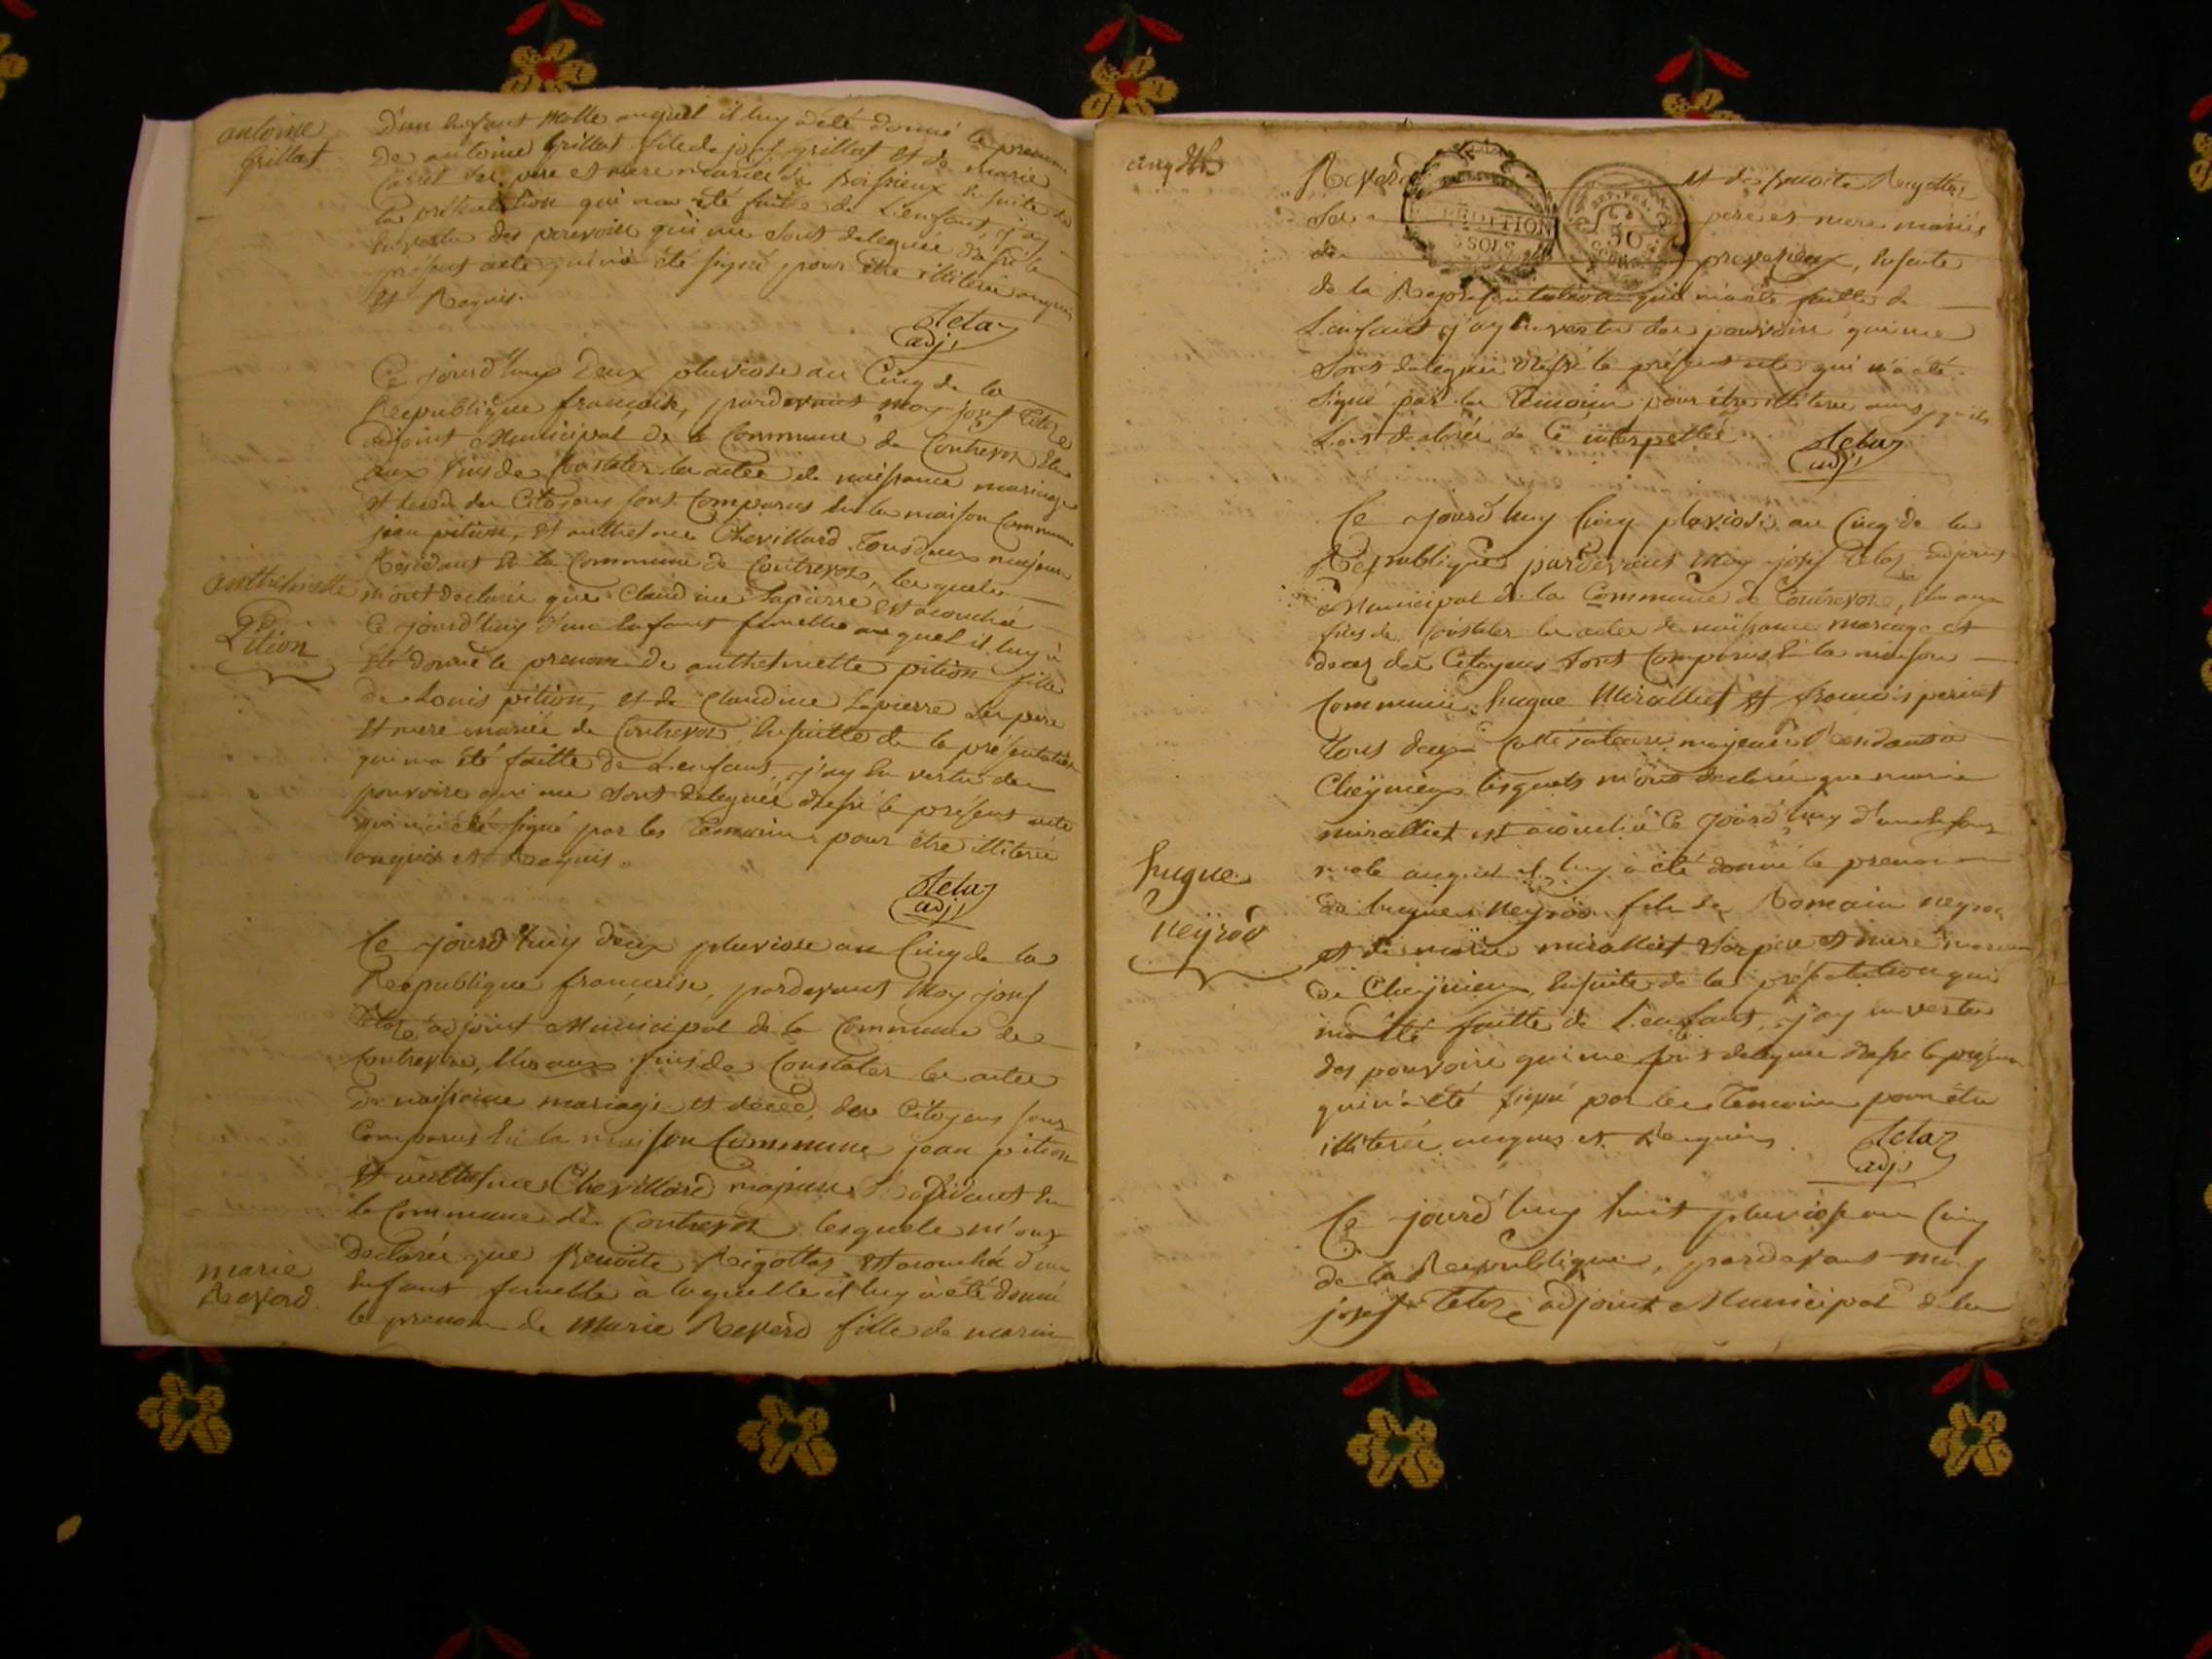 antoine
Grillat
D'un Enfant Malle auquel il luy a été donné le prenom
De antoine Grillat fils de josf grillat Et de Marie
pere et mere mariés de Ensuite de
la présentation qui m'a été faitte de L'enfant, j'ay
En vertu des pouvoirs qui me sont delegués drésé le
présent acte qui n'a été signé pour être illiteré enquis
Et Requis.
Tetaz
adj.
Ce jourd'huy Deux pluviose an Cinq de la
Republique francaise, pardevant Moy josf Tetaz
adjoint Municipal de la Commune de Contrevoz Elu
aux fins de Constater les actes de naissance mariage
et deced des Citoyens sont Comparus En la maison Commune
jean pition, Et anthelme Chevillard Tous deux majeurs
Résidant En la Commune de Contrevoz, lesquels
anthelmette
Pition
m'ont declarés que Claudine Lapierre Est acouchée
Ce jourd'huy d'un Enfant femelle auquel il luy a
Eté donné le prenom de anthelmette pition fille
de Louis pition, et de Claudine Lapierre Ses pere
Et mere mariés de Contrevoz Ensuitte de la présentation
qui m'a été faitte de L'enfant, j'ay En vertu des
pouvoirs qui me sont delegués drésé le présent acte
qui n'a été signé par les Temoins pour être illiterés
enquis et Requis.
Tetaz
adj.
Ce jourd'huy deux pluviose an Cinq de la
Republique francaise, pardevant Moy josf
Tetaz adjoint Municipal de la Commune de
Contrevoz, Elu aux fins de Constater les actes
De naissance mariage et deced, des Citoyens sont
Comparus En la maison Commune jean pition
Et anthelme Chevillard majeurs Residant En
la Commune de Contrevoz lesquels m'ont
Declarés que Benoite Rigottaz Est acouchée d'un
marie
Reverd
Enfant femelle à laquelle il luy a été donné
le prenom de Marie Reverd fille de marin
Reverd Et de Benoite
Ses pere et mere mariés
EDITION
SOLS
REP. FRA.
50
CENT.
de Ensuite
de la Representation qui m'a été faitte de
L'enfant j'ay En vertu des pouvoirs qui me
Sont delegués drésé le présent acte qui n'a été
Signé par les Temoins pour être illiteré ainsy qu'ils
L'ont declarés de Ce interpellés
Tetaz
adj.
Ce jourd'huy Cinq pluviose an Cinq de la
Republique pardevant Moy josf Tetaz adjoint
Municipal de la Commune de Contrevoz, Elu aux
fins de Constater les actes de naissance mariage et
deces des Citoyens Sont Comparus En la maison
Commune hugue Miralliet Et francois perint
Tous deux Cultivateurs majeurs
Cheÿnieu lesquels m'ont declarés que marie
miralliet est acouchée Ce jourd'huy d'un Enfant
hugue
neÿrod
male auquel il luy a été donné le prenom
de hugue Neÿrod fils de Romain neyrod
et de marie miralliet Ses pere et mere mariés
de Cheÿnieu, Ensuite de la présentation qui
m'a été faitte de L'enfant, j'ay en vertu
des pouvoirs qui me sont delegués drésé le présent
qui n'a été signé par les Temoins pour être
illiterés enquis et Requis.
Tetaz
adj.
Ce jourd'huy huit pluviose an Cinq
de la Republique, pardevant moy
josef Tetaz adjoint Municipal de la